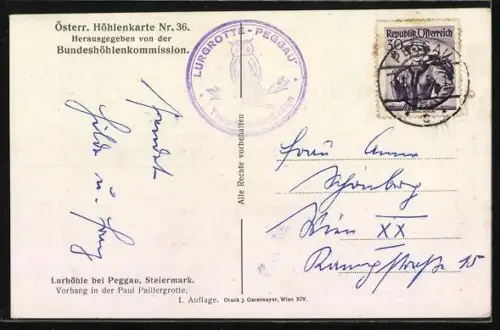 Österr. Höhlenkarte Nr. 36.
Herausgegeben von der
Bundeshöhlenkommission.
sendet
Hilde u.
Lurhöhle bei Peggau, Steiermark.
Vorhang in der Paul Paillergrotte.
I. Auflage. Druck j. Gerstmayer, Wien XIV.
Alle Rechte vorbehalten
LURGROTTE - PEGGAU
Republik Österreich
30
Frau Anna
Schönberg
Wien XX
Rampfstraße 15